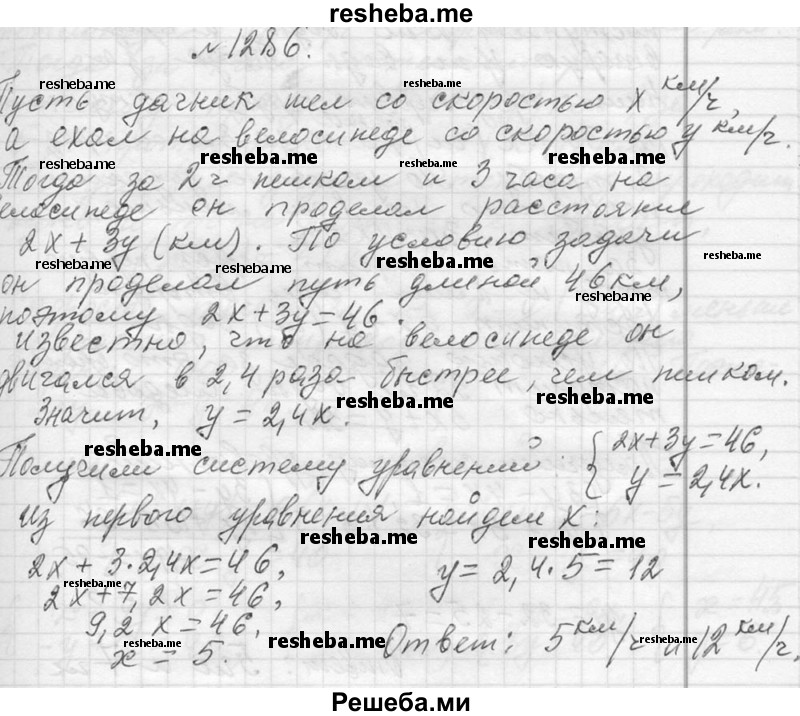 resheba.me
№1286.
resheba.me resheba.me
Пусть дачник шел со скоростью x км/ч,
а ехал на велосипеде со скоростью y км/ч.
resheba.me resheba.me resheba.me resheba.me
Тогда за 2ч пешком и 3 часа на
елосипеде он проделал расстояние
2x+3y (км). По условию задачи
resheba.me resheba.me resheba.me resheba.me
он проделал путь длиной 46км,
resheba.me
поэтому 2x+3y=46.
известно, что на велосипеде он
двигался в 2,4 раза быстрее, чем пешком.
resheba.me resheba.me
Значит, y=2,4x.
resheba.me
Получили систему уравнений: { 2x+3y=46,
y=2,4x.
из первого уравнения найдем x:
resheba.me resheba.me
2x+3·2,4x=46, y=2,4·5=12
resheba.me
2x+7,2x=46,
9,2x=46,
resheba.me resheba.me resheba.me
x=5. Ответ: 5 км/ч и 12 км/ч.
Решеба.ми